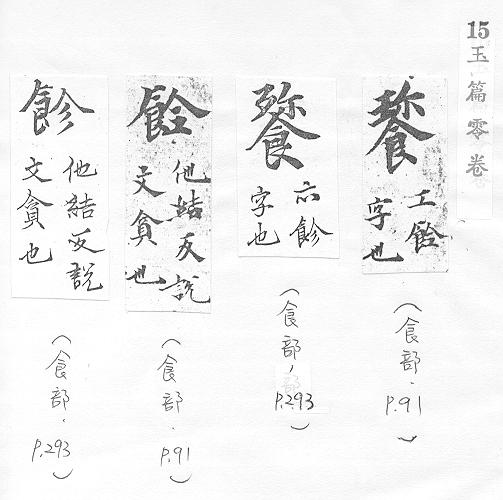 15玉篇零卷
字也
(食部,
P.91)
亦飻
字也
(食部,
P.293)
他結反說
文貪也
(食部.
P.91)
飻
他結反説
文貪也
(食部.
P.293)